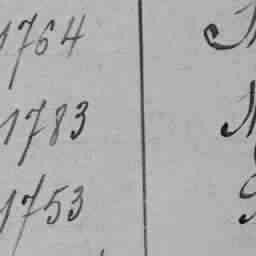 1764
1783
1753